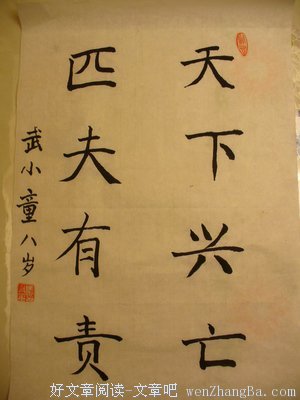 天下兴亡
匹夫有责
武小童八岁
好文章阅读-文章吧 wenZhangBa.com